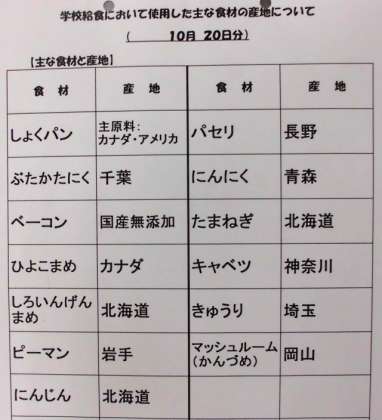 学校給食において使用した主な食材の産地について
( 10月 20日分)
【主な食材と産地】
食 材 産 地 食 材 産 地
しょくパン 主原料:カナダ・アメリカ パセリ 長野
ぶたかたにく 千葉 にんにく 青森
ベーコン 国産無添加 たまねぎ 北海道
ひよこまめ カナダ キャベツ 神奈川
しろいんげんまめ 北海道 きゅうり 埼玉
ピーマン 岩手 マッシュルーム(かんづめ) 岡山
にんじん 北海道